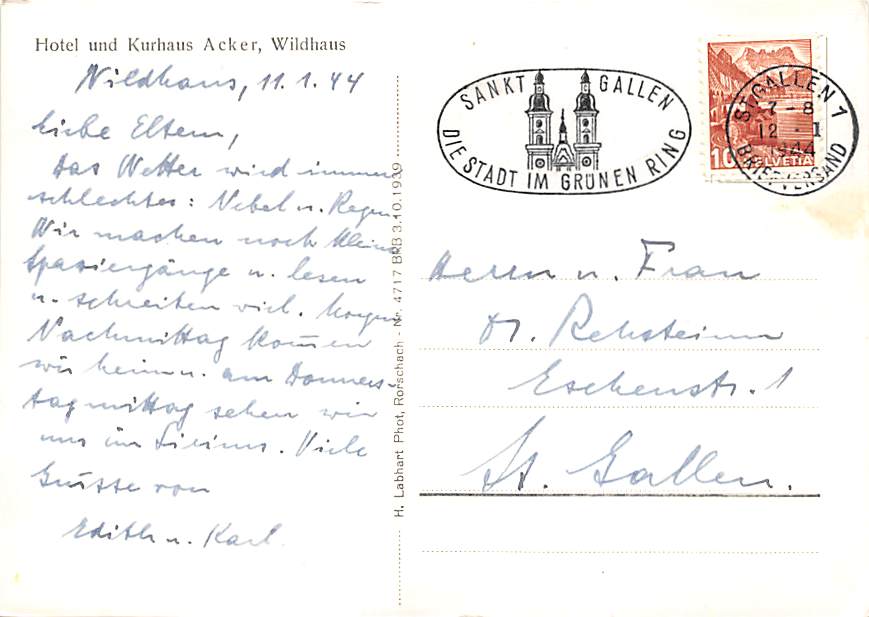 Hotel und Kurhaus Acker, Wildhaus
Wildhaus, 11.1.44
Liebe Eltern,
Das Wetter wird immer
schlechter: Nebel u. Regen.
Wir machen noch kleine
Spaziergänge u. lesen
u. schreiben viel. Morgen
Nachmittag kommen
wir heim u. am Donners-
tagmittag sehen wir
uns im. Viele
Grüsse von
Edith u. Karl.
H. Labhart Phot, Rorschach - Nr. 4717 BRB 3.10.1939
SANKT GALLEN
DIE STADT IM GRÜNEN RING
ST. GALLEN 1
7-8
12.-1
1944
BRIEFVERSAND
10 HELVETIA
Herrn u. Frau
Dr. Rehsteiner
Eschenstr. 1
St. Gallen.